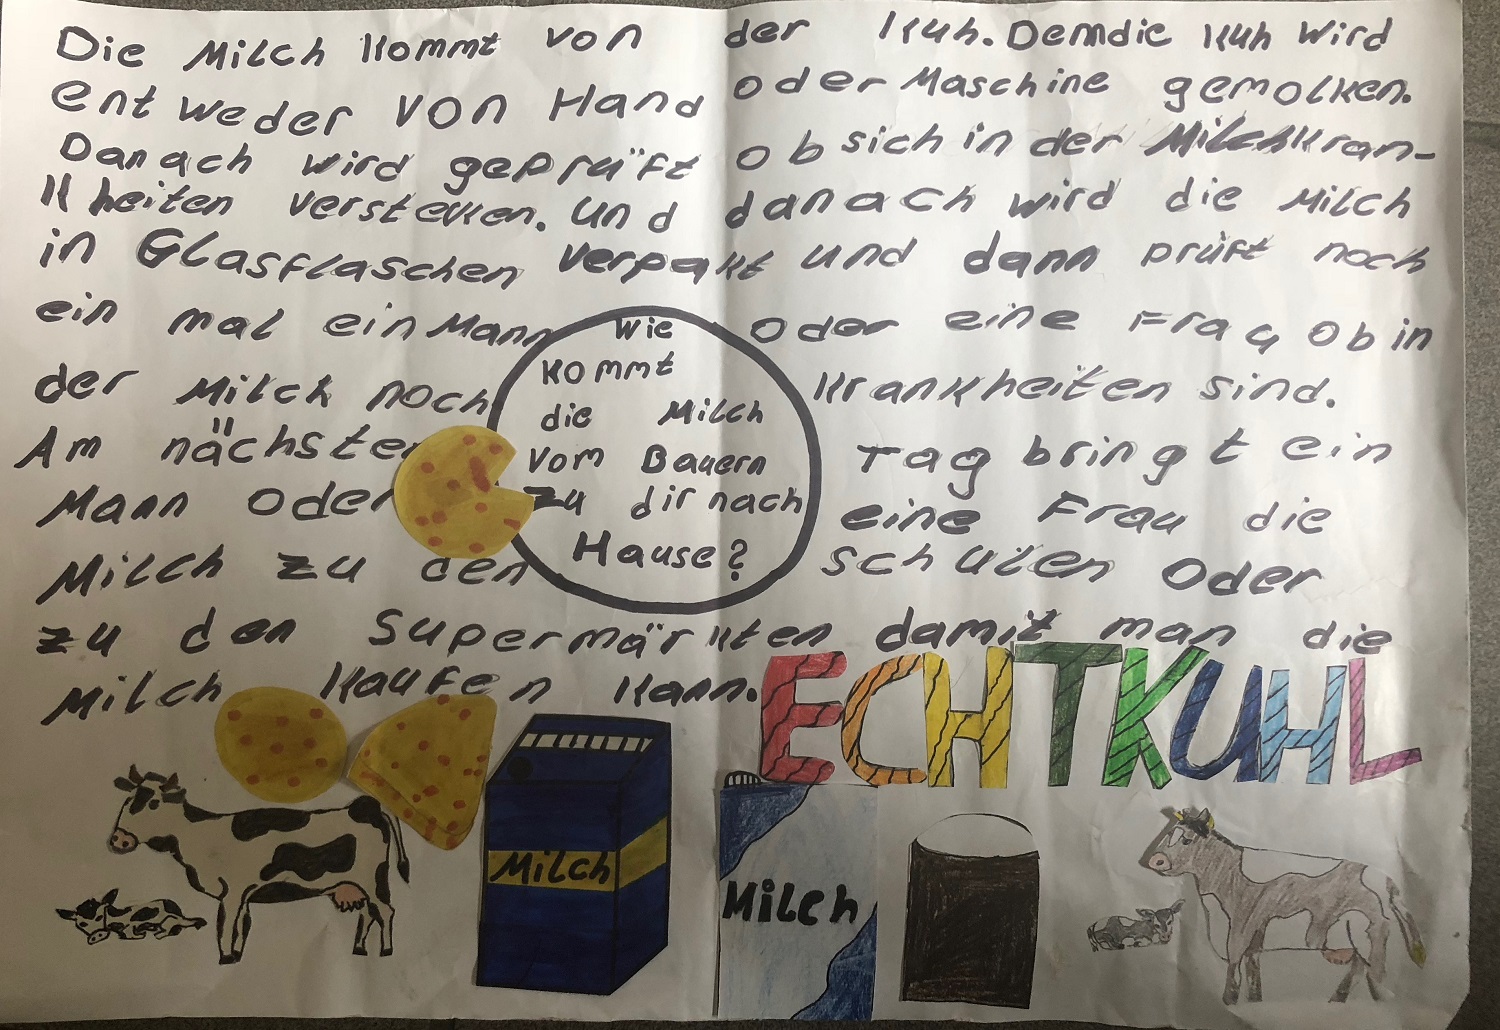 Die Milch kommt von der Kuh. Demdie Kuh wird
entweder von Hand oder Maschine gemolken.
Danach wird geprüft ob sich in der Milch kran-
kheiten verstecken. Und danach wird die Milch
in Glasflaschen verpakt und dann prüft noch
ein mal ein Mann oder eine Frau ob in
der Milch noch krankheiten sind.
Am nächsten Tag bringt ein
Mann oder eine Frau die
Milch zu den schulen oder
zu den Supermärkten damit man die
Milch kaufen kann.
Wie
kommt
die Milch
vom Bauern
zu dir nach
Hause?
ECHTKUHL
Milch
Milch